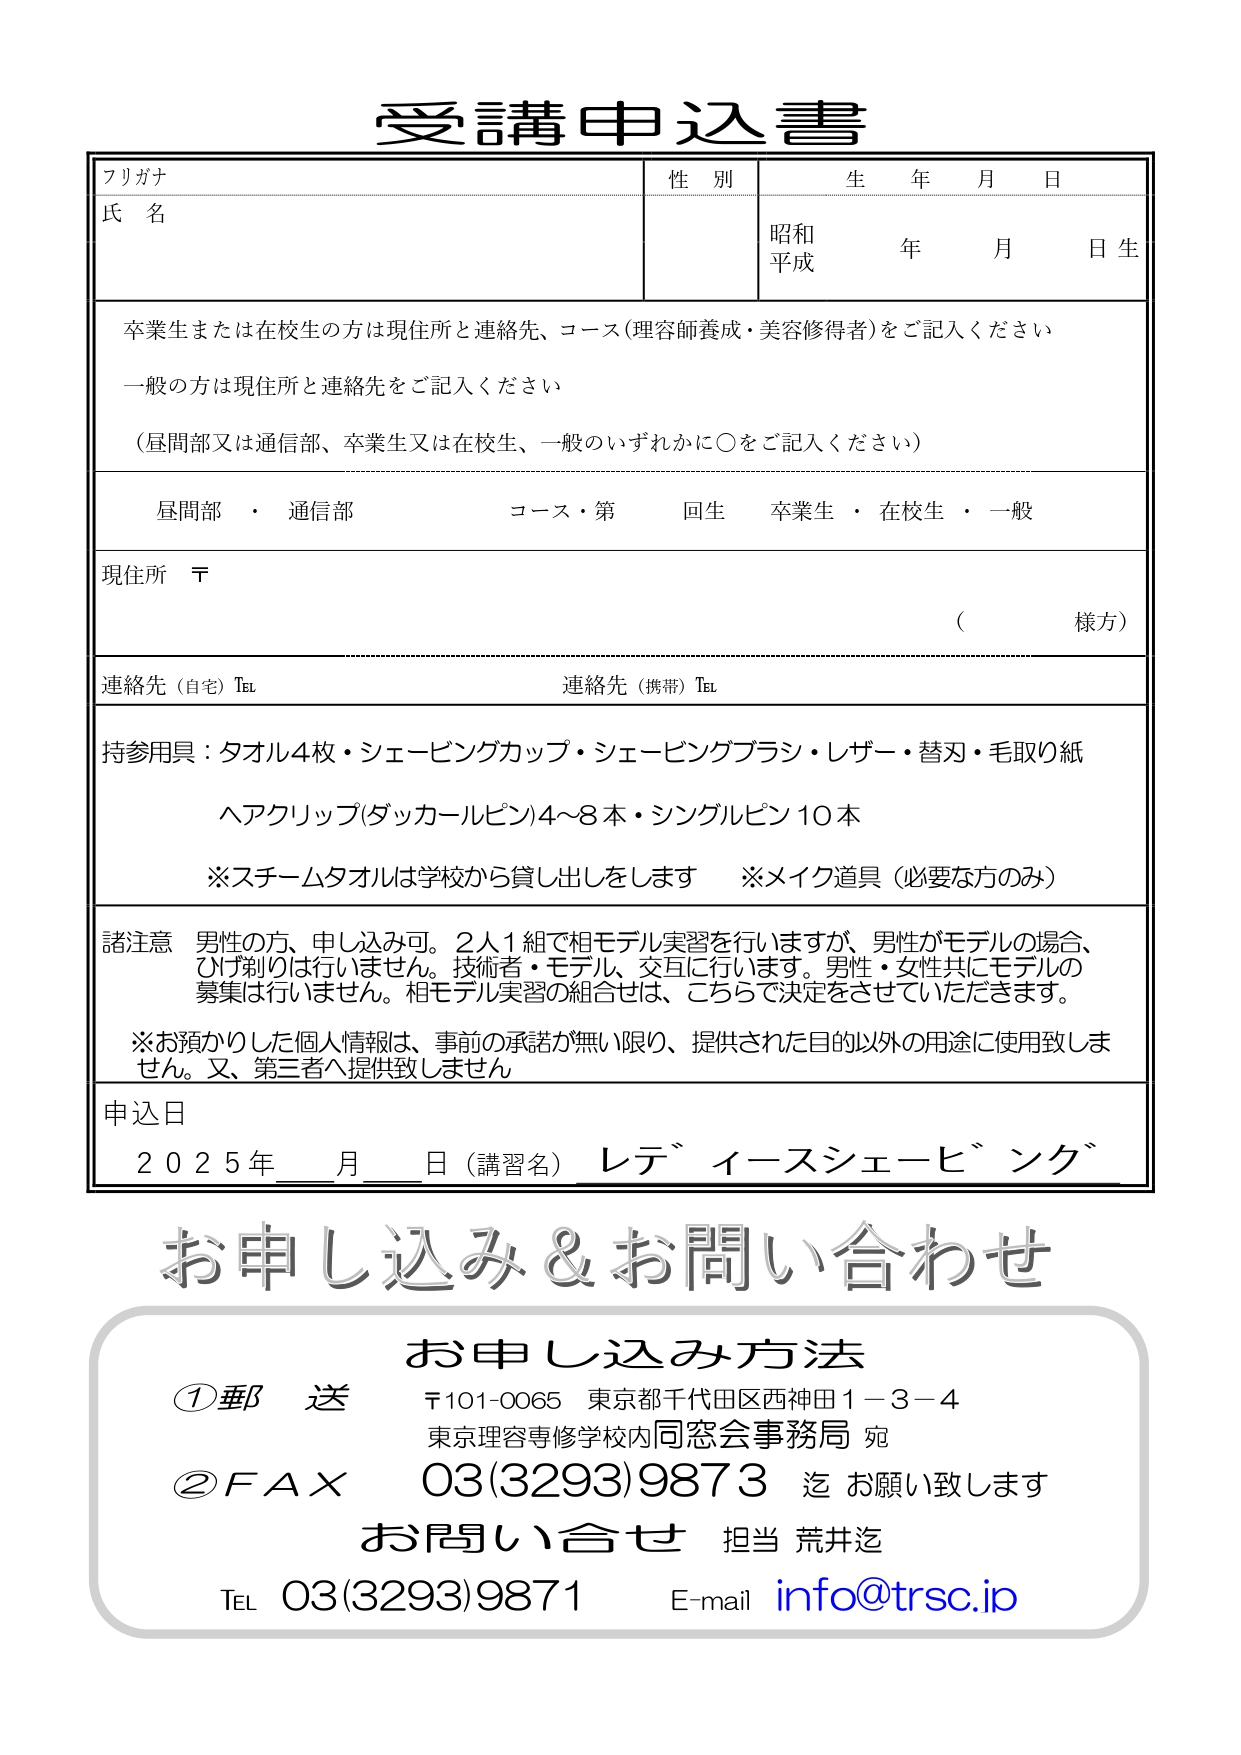 受講申込書
フリガナ 性　別 生　年　月　日
氏　名
昭和
平成 年 月 日 生
卒業生または在校生の方は現住所と連絡先、コース(理容師養成・美容修得者)をご記入ください
一般の方は現住所と連絡先をご記入ください
（昼間部又は通信部、卒業生又は在校生、一般のいずれかに〇をご記入ください）
昼間部　・　通信部 コース・第 回生 卒業生 ・ 在校生 ・ 一般
現住所　〒
（ 様方）
連絡先（自宅）℡ 連絡先（携帯）℡
持参用具：タオル４枚・シェービングカップ・シェービングブラシ・レザー・替刃・毛取り紙
ヘアクリップ(ダッカールピン)4～8本・シングルピン10本
※スチームタオルは学校から貸し出しをします　※メイク道具（必要な方のみ）
諸注意　男性の方、申し込み可。２人１組で相モデル実習を行いますが、男性がモデルの場合、
ひげ剃りは行いません。技術者・モデル、交互に行います。男性・女性共にモデルの
募集は行いません。相モデル実習の組合せは、こちらで決定をさせていただきます。
※お預かりした個人情報は、事前の承諾が無い限り、提供された目的以外の用途に使用致しま
せん。又、第三者へ提供致しません
申込日
２０２５年＿＿月＿＿日（講習名） レディースシェービング
お申し込み＆お問い合わせ
お申し込み方法
①郵　送 〒101-0065　東京都千代田区西神田１－３－４
東京理容専修学校内同窓会事務局 宛
②ＦＡＸ 03(3293)9873 迄 お願い致します
お問い合せ 担当 荒井迄
℡ 03(3293)9871 E-mail info@trsc.jp